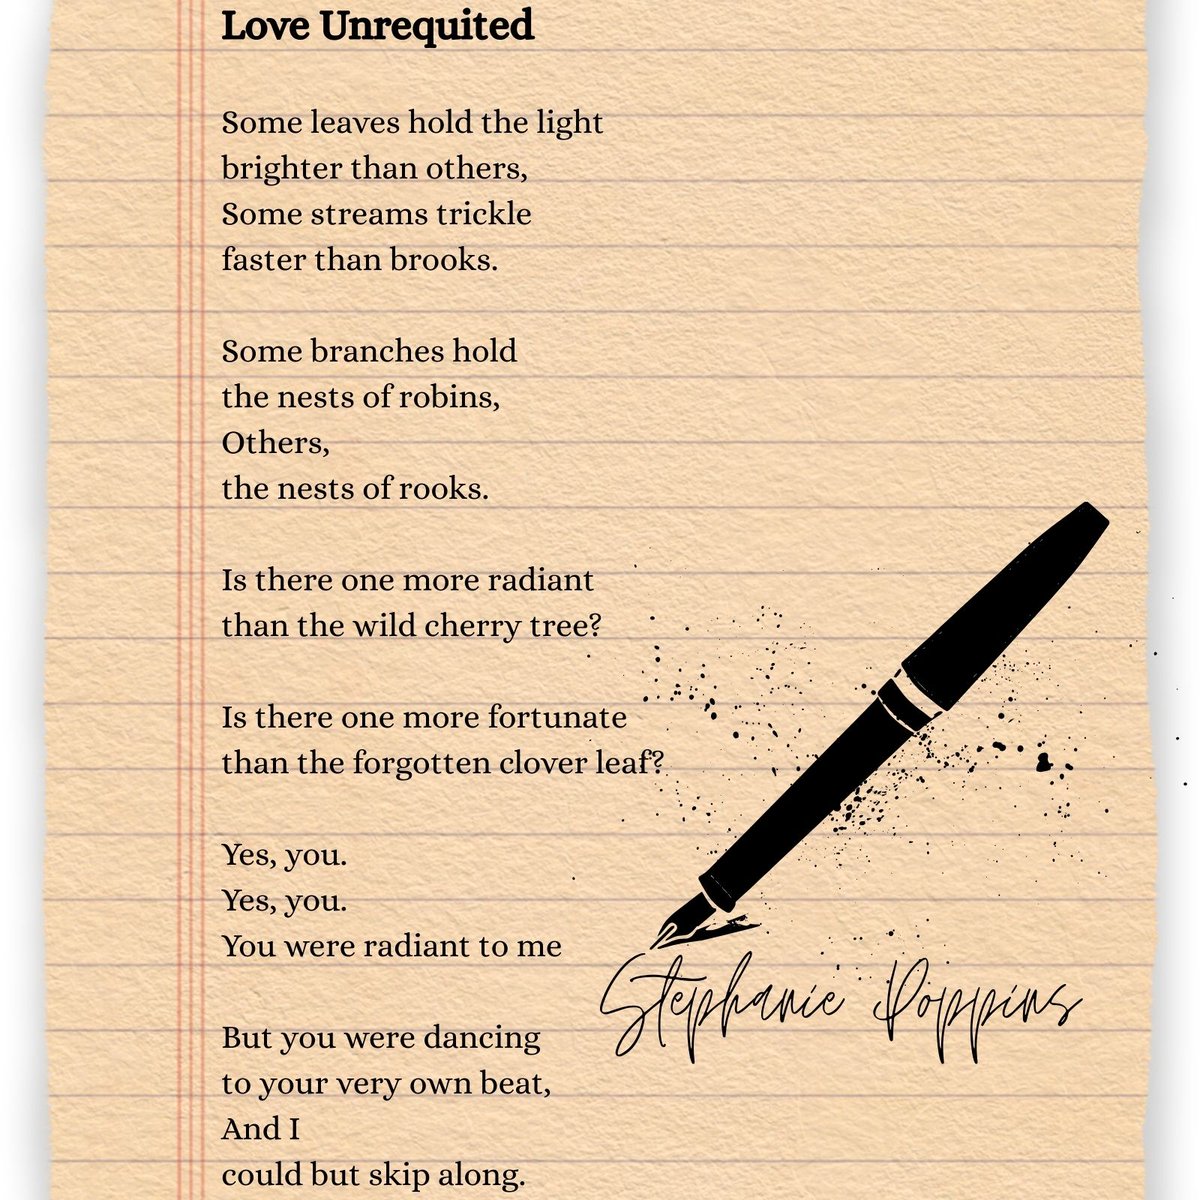 Love Unrequited
Some leaves hold the light
brighter than others,
Some streams trickle
faster than brooks.
Some branches hold
the nests of robins,
Others,
the nests of rooks.
Is there one more radiant
than the wild cherry tree?
Is there one more fortunate
than the forgotten clover leaf?
Yes, you.
Yes, you.
You were radiant to me
Stephanie Poppins
But you were dancing
to your very own beat,
And I
could but skip along.